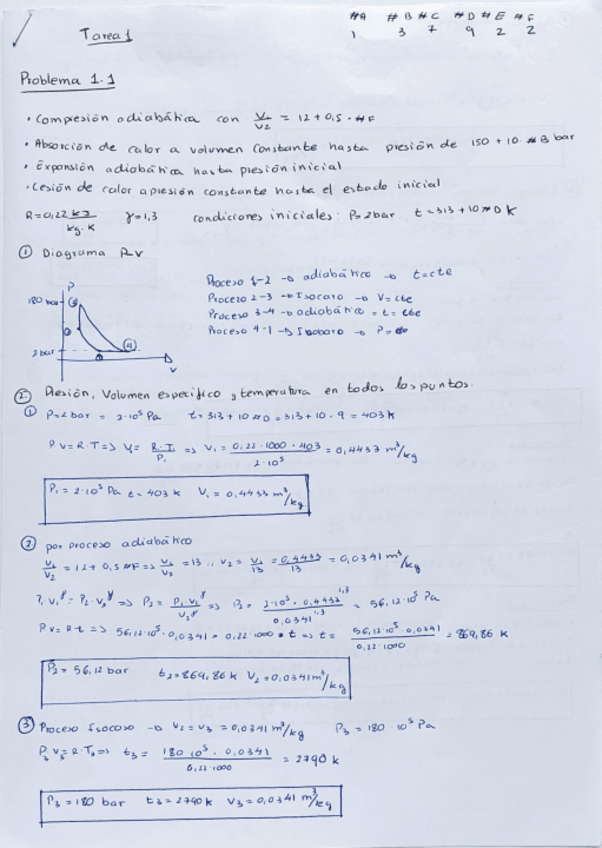 Tarea 1
#A #B #C #D #E #F
1 3 7 9 2 2
Problema 1.1
• Compresión adiabática con V₁/V₂ = 12 + 0,5 · #F
• Absorción de calor a volumen constante hasta presión de 150 + 10 #B bar
• Expansión adiabática hasta presión inicial
• Cesión de calor a presión constante hasta el estado inicial
R = 0,22 kJ/kg·K γ = 1,3 condiciones iniciales: P = 2 bar t = 313 + 10 #D K
① Diagrama P-V
P
180 bar
2 bar
V
Proceso 1-2 → adiabático → t = cte
Proceso 2-3 → Isocoro → V = cte
Proceso 3-4 → adiabático = t = cte
Proceso 4-1 → Isobaro → P = cte
②: Presión, Volumen especifico y temperatura en todos los puntos.
① P = 2 bar = 2·10⁵ Pa t = 313 + 10 #D = 313 + 10 · 9 = 403 K
P V = R · T => V₁ = R·T₁/P₁ => V₁ = 0,22 · 1000 · 403 / 2·10⁵ = 0,4433 m³/kg
P₁ = 2·10⁵ Pa t = 403 K V₁ = 0,4433 m³/kg
② por proceso adiabático
V₁/V₂ = 12 + 0,5 #F => V₁/V₂ = 13 ; V₂ = V₁/13 = 0,4433/13 = 0,0341 m³/kg
P₁ V₁^γ = P₂ · V₂^γ => P₂ = P₁ V₁^γ / V₂^γ => P₂ = 2·10⁵ · 0,4433^1,3 / 0,0341^1,3 = 56,12·10⁵ Pa
P V = R·t => 56,12·10⁵ · 0,0341 = 0,22 · 1000 · t => t = 56,12·10⁵ · 0,0341 / 0,22·1000 = 869,86 K
P₂ = 56,12 bar t₂ = 869,86 K V₂ = 0,0341 m³/kg
③ Proceso Isocoso → V₂ = V₃ = 0,0341 m³/kg P₃ = 180 · 10⁵ Pa
P₃ V₃ = R·T₃ => t₃ = 180·10⁵ · 0,0341 / 0,22·1000 = 2790 K
P₃ = 180 bar t₃ = 2790 K V₃ = 0,0341 m³/kg